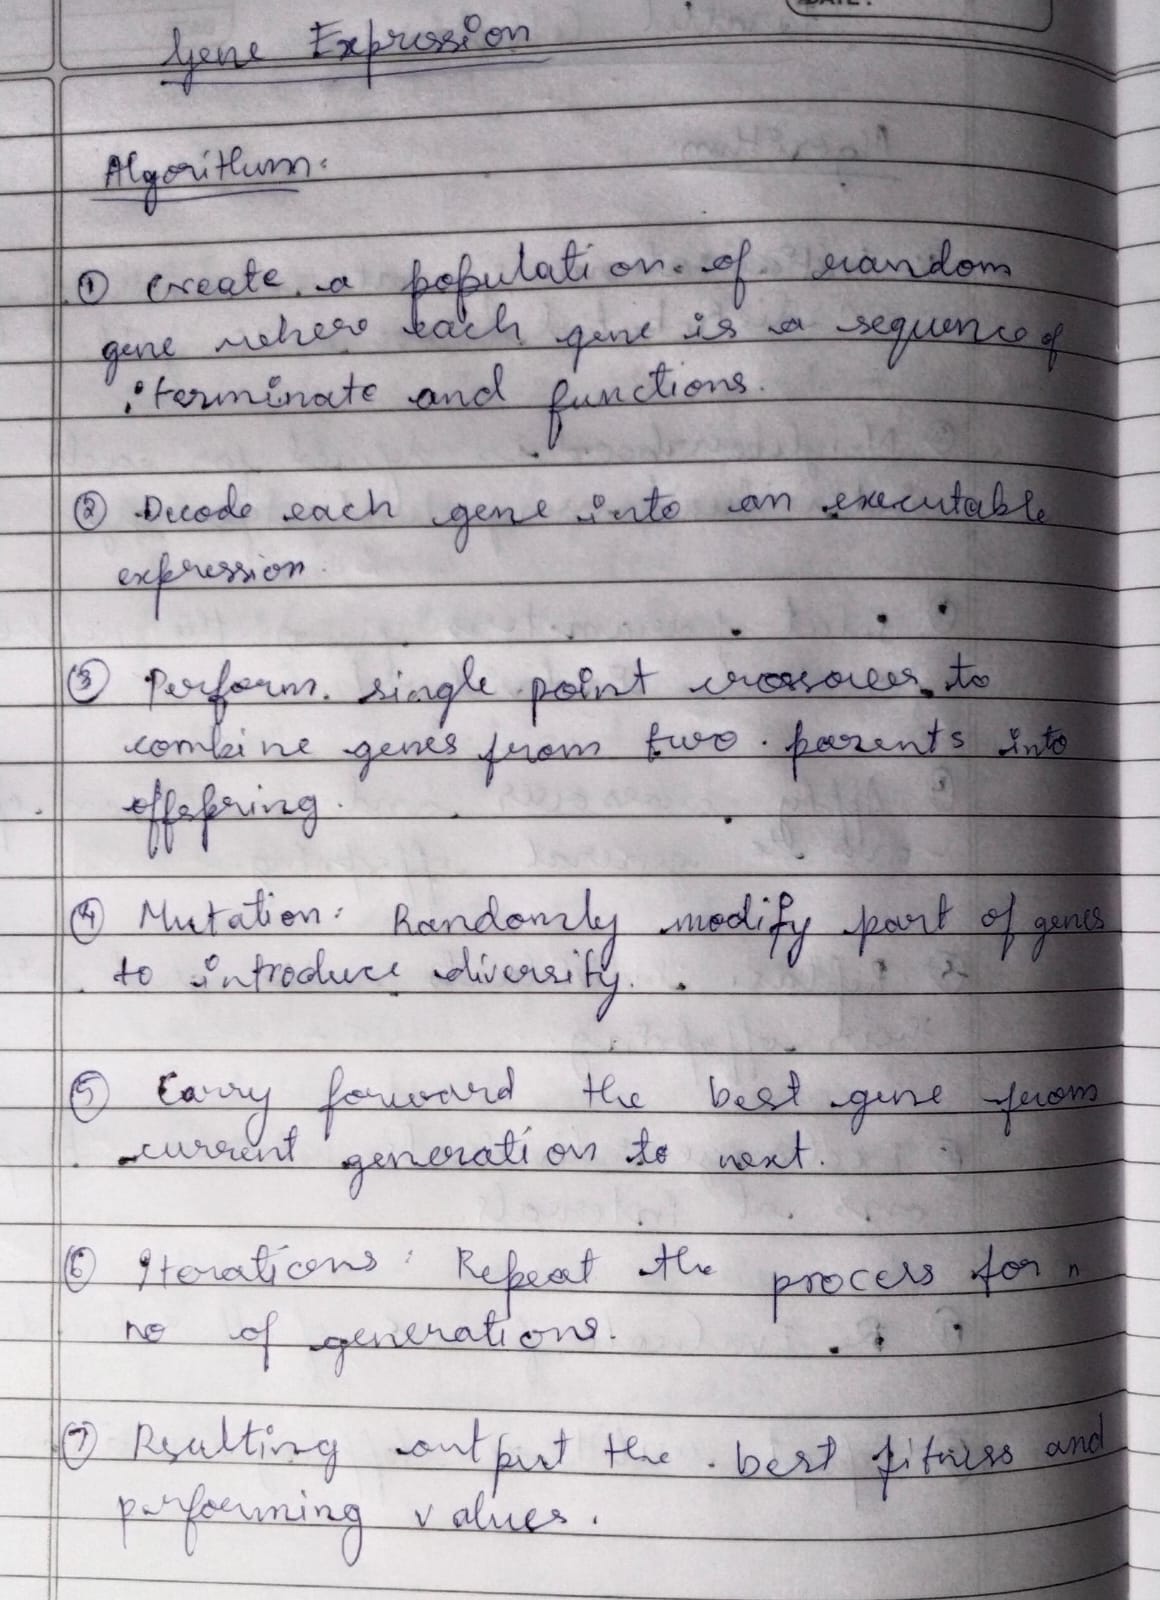 DATE:
Gene Expression
Algorithum:
① Create a population of random
gene where each gene is a sequence of
terminate and functions.
② Decode each gene into an executable
expression.
③ Perform single point crossover to
combine genes from two parents into
offspring.
④ Mutation: Randomly modify part of genes
to introduce diversity.
⑤ Carry forward the best gene from
current generation to next.
⑥ Iterations: Repeat the process for n
no of generations.
⑦ Resulting output the best fitness and
performing values.